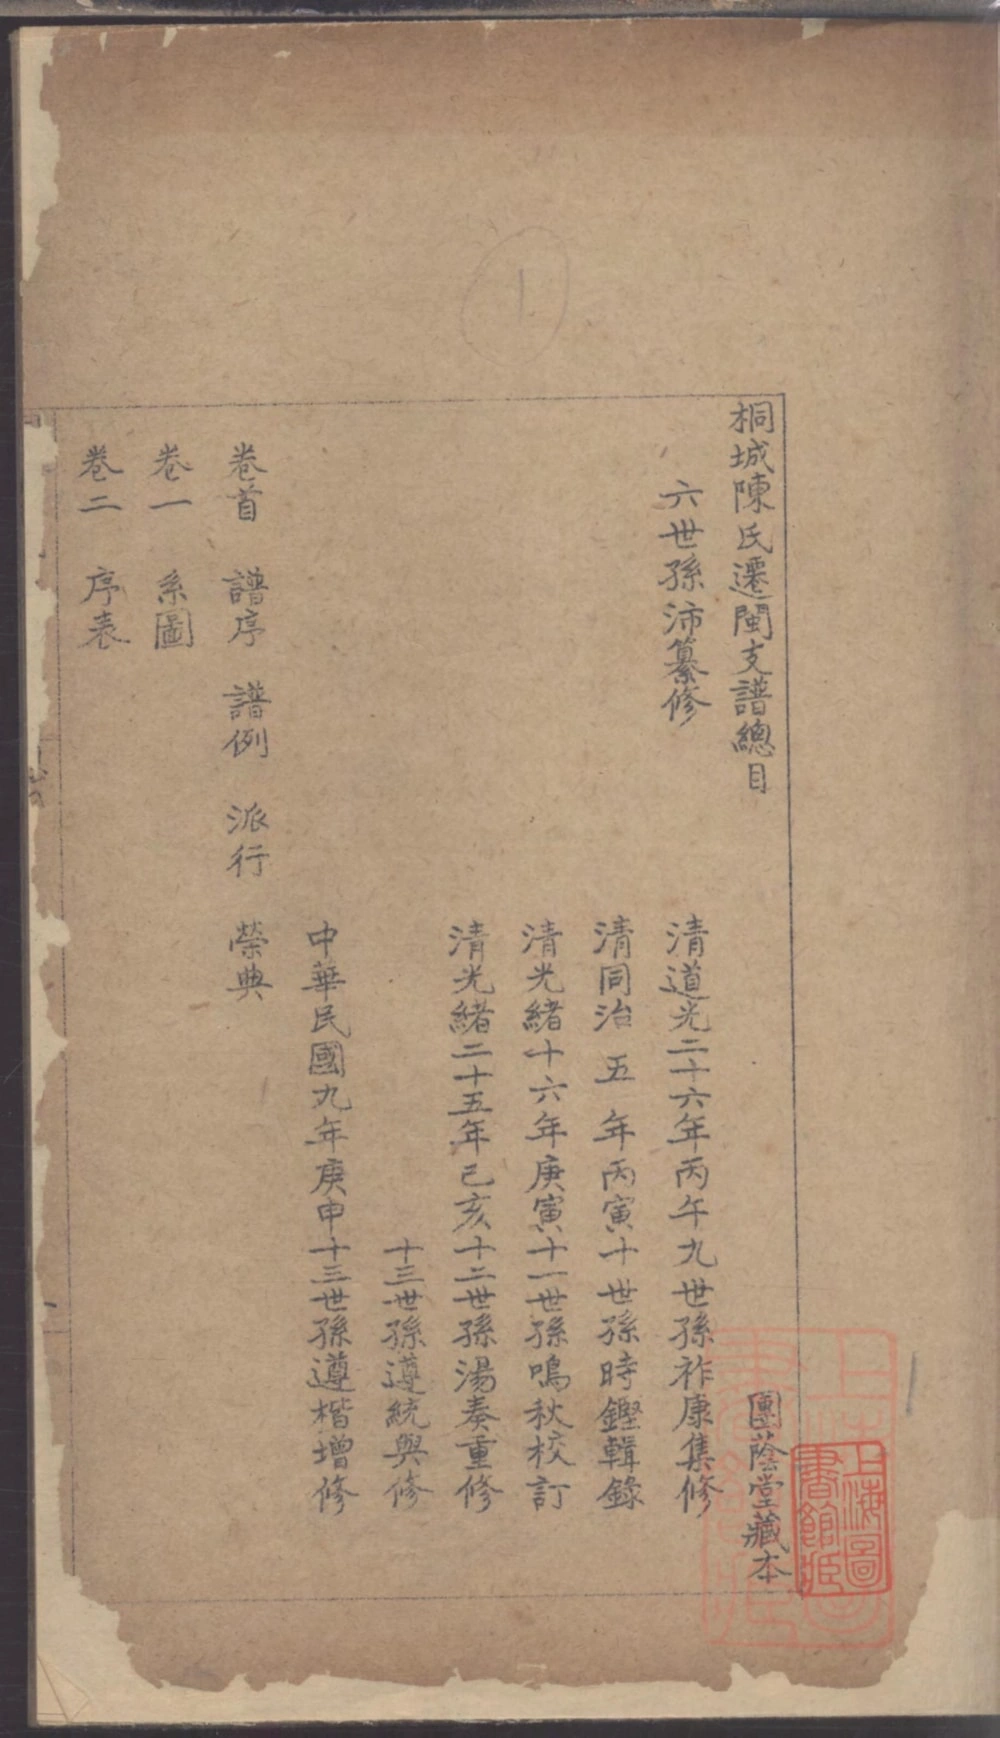 桐城陳氏遷閩支譜總目
團蔭堂藏本
六世孫沛纂修
清道光二十六年丙午九世孫祚康集修
清同治五年丙寅十世孫時鏗輯錄
清光緒十六年庚寅十一世孫鳴秋校訂
清光緒二十五年己亥十二世孫湯奏重修
十三世孫遵統與修
中華民國九年庚申十三世孫遵楷增修
卷首 譜序 譜例 派行 榮典
卷一 系圖
卷二 序表
上海圖書館藏
1